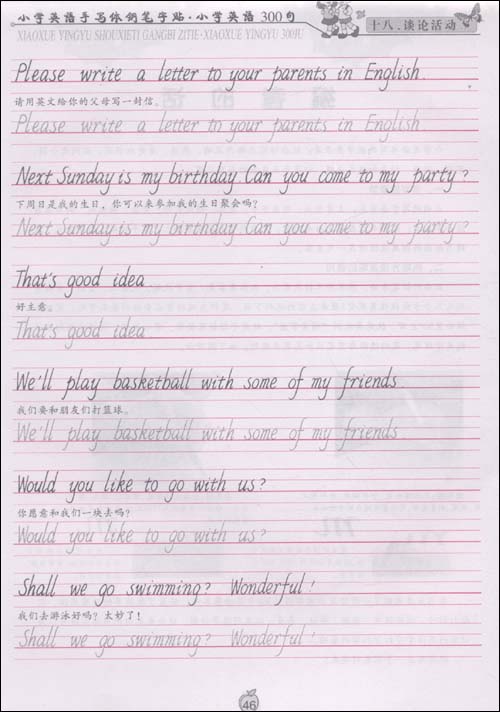 小学英语手写体钢笔字贴·小学英语300句
XIAOXUE YINGYU SHOUXIETI GANGBI ZITIE·XIAOXUE YINGYU 300JU
十八.谈论活动
Please write a letter to your parents in English.
请用英文给你的父母写一封信。
Please write a letter to your parents in English.
Next Sunday is my birthday Can you come to my party?
下周日是我的生日，你可以来参加我的生日聚会吗?
Next Sunday is my birthday Can you come to my party?
That's good idea
好主意。
That's good idea
We'll play basketball with some of my friends
我们要和朋友们打篮球。
We'll play basketball with some of my friends
Would you like to go with us?
你愿意和我们一块去吗?
Would you like to go with us?
Shall we go swimming? Wonderful!
我们去游泳好吗? 太妙了!
Shall we go swimming? Wonderful!
46